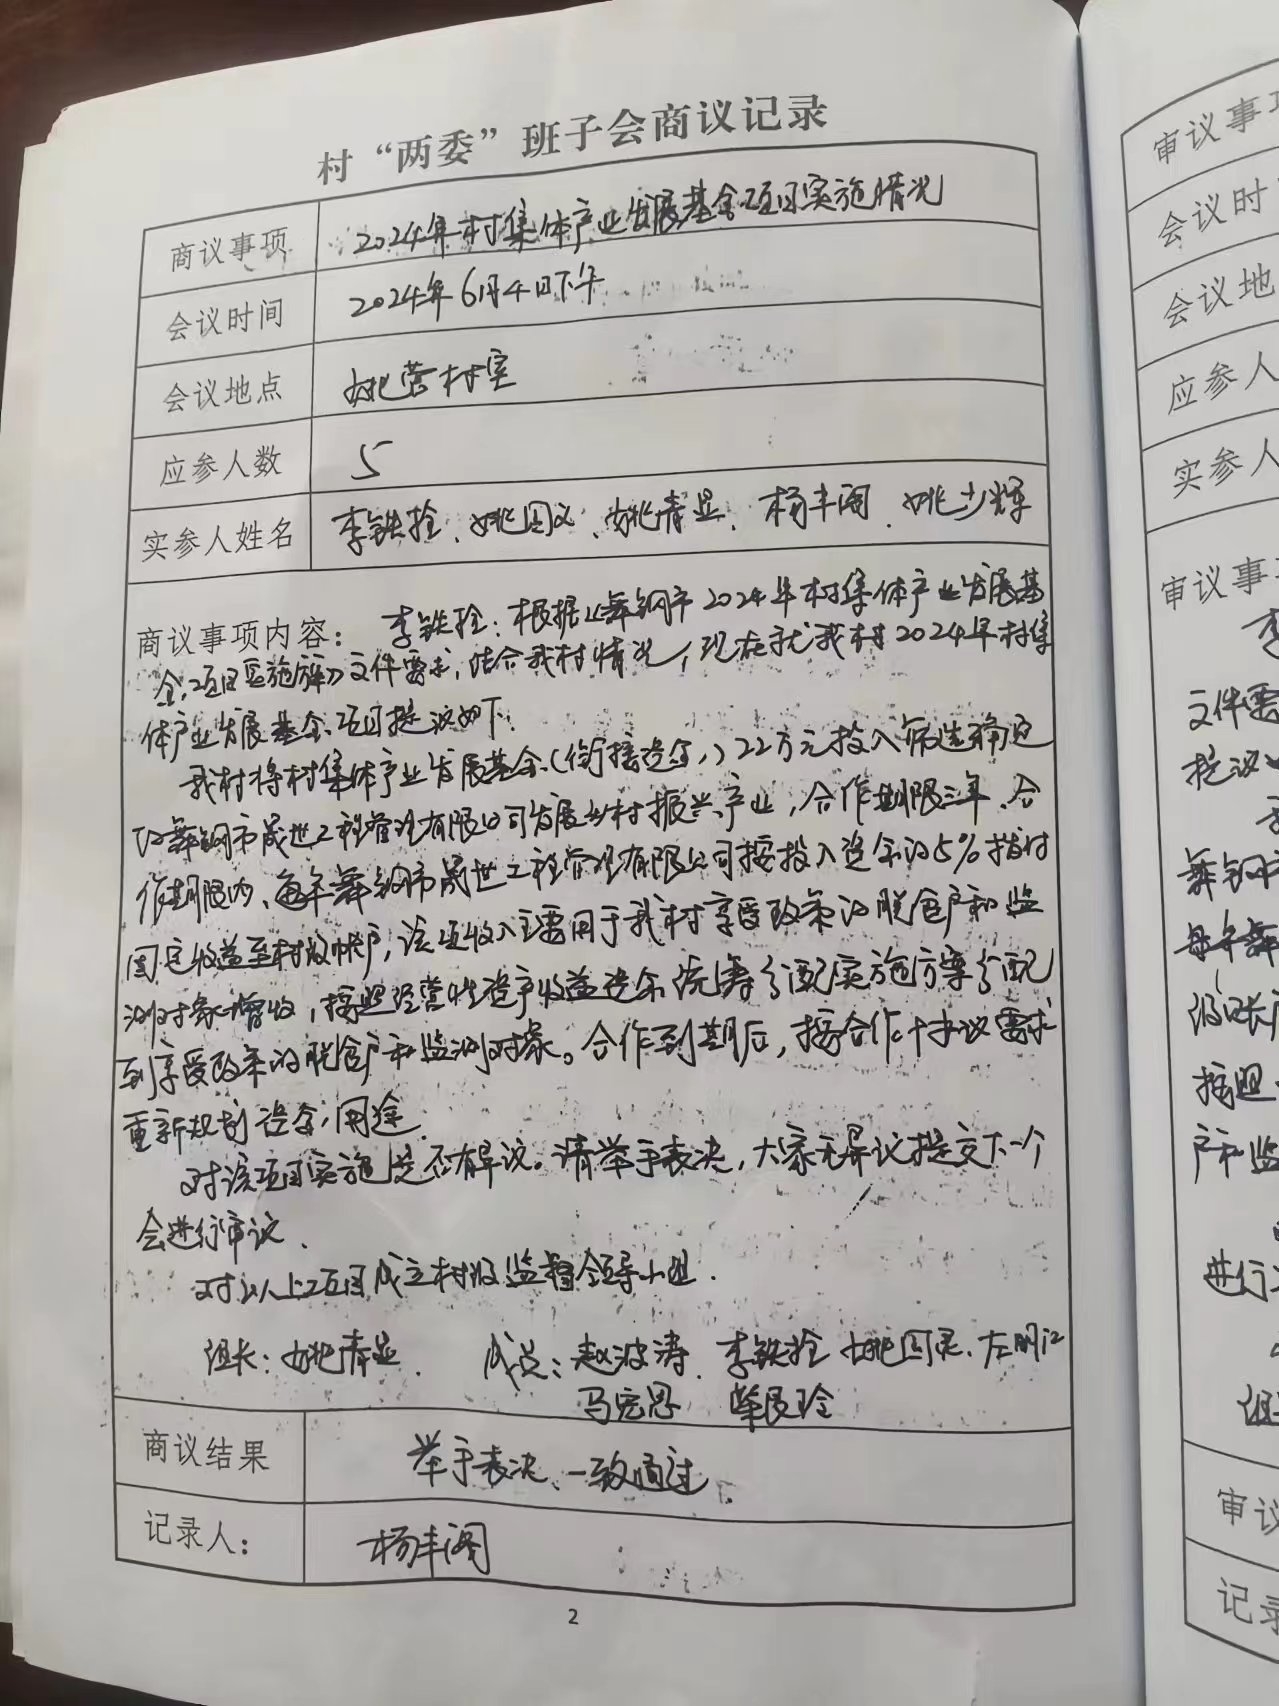 村“两委”班子会商议记录
商议事项 2024年村集体产业发展基金项目实施情况
会议时间 2024年6月4日下午
会议地点 姚营村室
应参人数 5
实参人姓名 李铁拴、姚国义、姚青显、杨丰阁、姚少辉
商议事项内容： 李铁拴：根据《舞钢市2024年村集体产业发展基
金项目实施方案》文件要求，结合我村情况，现在就我村2024年村集
体产业发展基金项目提议如下：
我村将村集体产业发展基金（衔接资金）22万元投入
舞钢市晟世工程管理有限公司发展乡村振兴产业，合作期限三年、合
作期限内，每年舞钢市晟世工程管理有限公司按投入资金的5%拨付
固定收益至村级帐户，该项收入主要用于我村享受政策的脱贫户和监
测对象增收，按照经营性资产收益资金统筹分配实施方案分配
到享受政策的脱贫户和监测对象。合作到期后，按合作协议要求
重新规划资金用途
对该项目实施是否有异议。请举手表决，大家无异议提交下一个
会进行审议、
对以上项目成立村级监督领导小组.
组长：姚青显 成员：赵波涛、李铁拴 姚国 左明江
马宏恩
商议结果 举手表决、一致通过
记录人： 杨丰阁
2
审议事项
会议时
会议地
应参人
实参人
审议事
李
文件
提议
舞钢市
每年舞
级账户
按照
户和监
进行
组
审议
记录